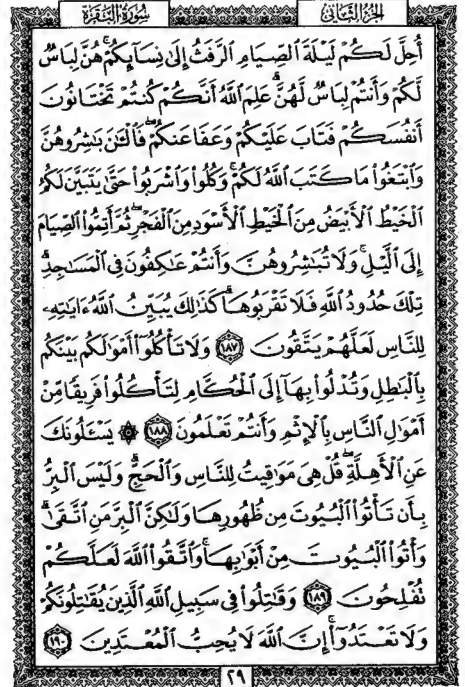 سُورَةُ البَقَرَةِ الجُزْءُ الثَّانِي
أُحِلَّ لَكُمْ لَيْلَةَ ٱلصِّيَامِ ٱلرَّفَثُ إِلَىٰ نِسَآئِكُمْ ۚ هُنَّ لِبَاسٌ
لَّكُمْ وَأَنتُمْ لِبَاسٌ لَّهُنَّ ۗ عَلِمَ ٱللَّهُ أَنَّكُمْ كُنتُمْ تَخْتَانُونَ
أَنفُسَكُمْ فَتَابَ عَلَيْكُمْ وَعَفَا عَنكُمْ ۖ فَٱلْـَٰٔنَ بَـٰشِرُوهُنَّ
وَٱبْتَغُوا۟ مَا كَتَبَ ٱللَّهُ لَكُمْ ۚ وَكُلُوا۟ وَٱشْرَبُوا۟ حَتَّىٰ يَتَبَيَّنَ لَكُمُ
ٱلْخَيْطُ ٱلْأَبْيَضُ مِنَ ٱلْخَيْطِ ٱلْأَسْوَدِ مِنَ ٱلْفَجْرِ ۖ ثُمَّ أَتِمُّوا۟ ٱلصِّيَامَ
إِلَى ٱلَّيْلِ ۚ وَلَا تُبَـٰشِرُوهُنَّ وَأَنتُمْ عَـٰكِفُونَ فِى ٱلْمَسَـٰجِدِ ۗ
تِلْكَ حُدُودُ ٱللَّهِ فَلَا تَقْرَبُوهَا ۗ كَذَٰلِكَ يُبَيِّنُ ٱللَّهُ ءَايَـٰتِهِۦ
لِلنَّاسِ لَعَلَّهُمْ يَتَّقُونَ ١٨٧ وَلَا تَأْكُلُوٓا۟ أَمْوَٰلَكُم بَيْنَكُم
بِٱلْبَـٰطِلِ وَتُدْلُوا۟ بِهَآ إِلَى ٱلْحُكَّامِ لِتَأْكُلُوا۟ فَرِيقًا مِّنْ
أَمْوَٰلِ ٱلنَّاسِ بِٱلْإِثْمِ وَأَنتُمْ تَعْلَمُونَ ١٨٨ ۞ يَسْـَٔلُونَكَ
عَنِ ٱلْأَهِلَّةِ ۖ قُلْ هِىَ مَوَٰقِيتُ لِلنَّاسِ وَٱلْحَجِّ ۗ وَلَيْسَ ٱلْبِرُّ
بِأَن تَأْتُوا۟ ٱلْبُيُوتَ مِن ظُهُورِهَا وَلَـٰكِنَّ ٱلْبِرَّ مَنِ ٱتَّقَىٰ ۗ
وَأْتُوا۟ ٱلْبُيُوتَ مِنْ أَبْوَٰبِهَا ۚ وَٱتَّقُوا۟ ٱللَّهَ لَعَلَّكُمْ
تُفْلِحُونَ ١٨٩ وَقَـٰتِلُوا۟ فِى سَبِيلِ ٱللَّهِ ٱلَّذِينَ يُقَـٰتِلُونَكُمْ
وَلَا تَعْتَدُوٓا۟ ۚ إِنَّ ٱللَّهَ لَا يُحِبُّ ٱلْمُعْتَدِينَ ١٩٠
٢٩